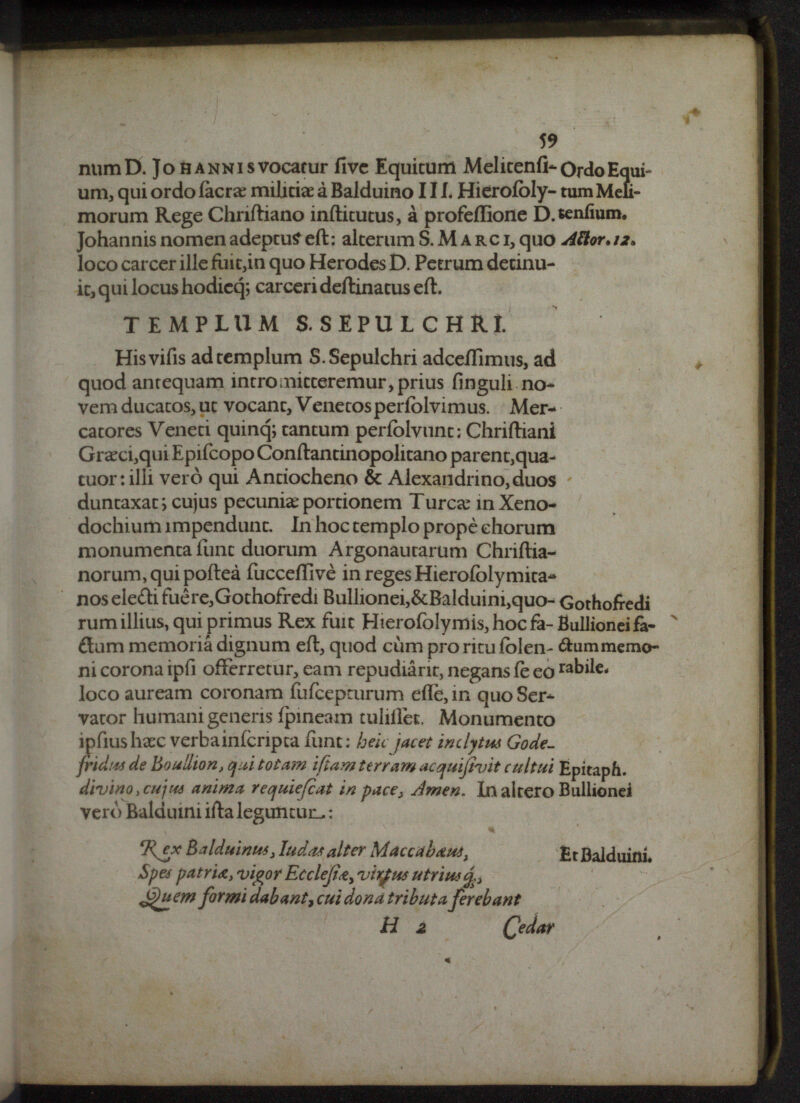 59
num D. JOHANNIS vocatur ſive Equitum Melitenſi- Ordo Equi-
um, qui ordo ſacræ militiæ à Balduino III. Hieroſoly- tum Meli-
morum Rege Chriſtiano inſtitutus, à profeſſione D. tenſium.
Johannis nomen adeptus eſt: alterum S. MARCI, quo Actor. 12.
loco carcer ille fuit, in quo Herodes D. Petrum detinu-
it, qui locus hodieq; carceri deſtinatus eſt.
TEMPLUM S. SEPULCHRI.
His viſis ad templum S. Sepulchri adceſſimus, ad
quod antequam intromitteremur, prius ſinguli no-
vem ducatos, ut vocant, Venetos perſolvimus. Mer-
catores Veneti quinq; tantum perſolvunt: Chriſtiani
Græci, qui Epiſcopo Conſtantinopolitano parent, qua-
tuor: illi verò qui Antiocheno & Alexandrino, duos
duntaxat; cujus pecuniæ portionem Turcæ in Xeno-
dochium impendunt. In hoc templo propè chorum
monumenta ſunt duorum Argonautarum Chriſtia-
norum, qui poſteà ſucceſſivè in reges Hieroſolymita-
nos electi fuêre, Gothofredi Bullionei, & Balduini, quo- Gothofredi
rum illius, qui primus Rex fuit Hieroſolymis, hoc fa- Bullionei fa-
ctum memoriâ dignum eſt, quod cùm pro ritu ſolen- ctum memo-
ni corona ipſi offerretur, eam repudiârit, negans ſe eo rabile.
loco auream coronam ſuſcepturum eſſe, in quo Ser-
vator humani generis ſpineam tuliſſet. Monumento
ipſius hæc verba inſcripta ſunt: heic jacet inclytus Gode-
fridus de Boullion, qui totam iſtam terram acquiſivit cultui Epitaph.
divino, cujus anima requieſcat in pace, Amen. In altero Bullionei
verò Balduini iſta leguntur:
Rex Balduinus, Iudas alter Maccabæus, Et Balduini.
Spes patriæ, vigor Eccleſiæ, virtus utriusq;,
Quem formidabant, cui dona tributa ferebant
H 2 Cedar